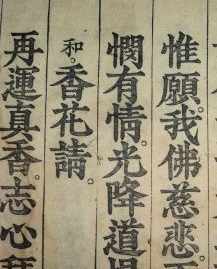 惟願。我佛慈悲。
憫有情。光降道場
和。香花請。
再運真香。志心拜